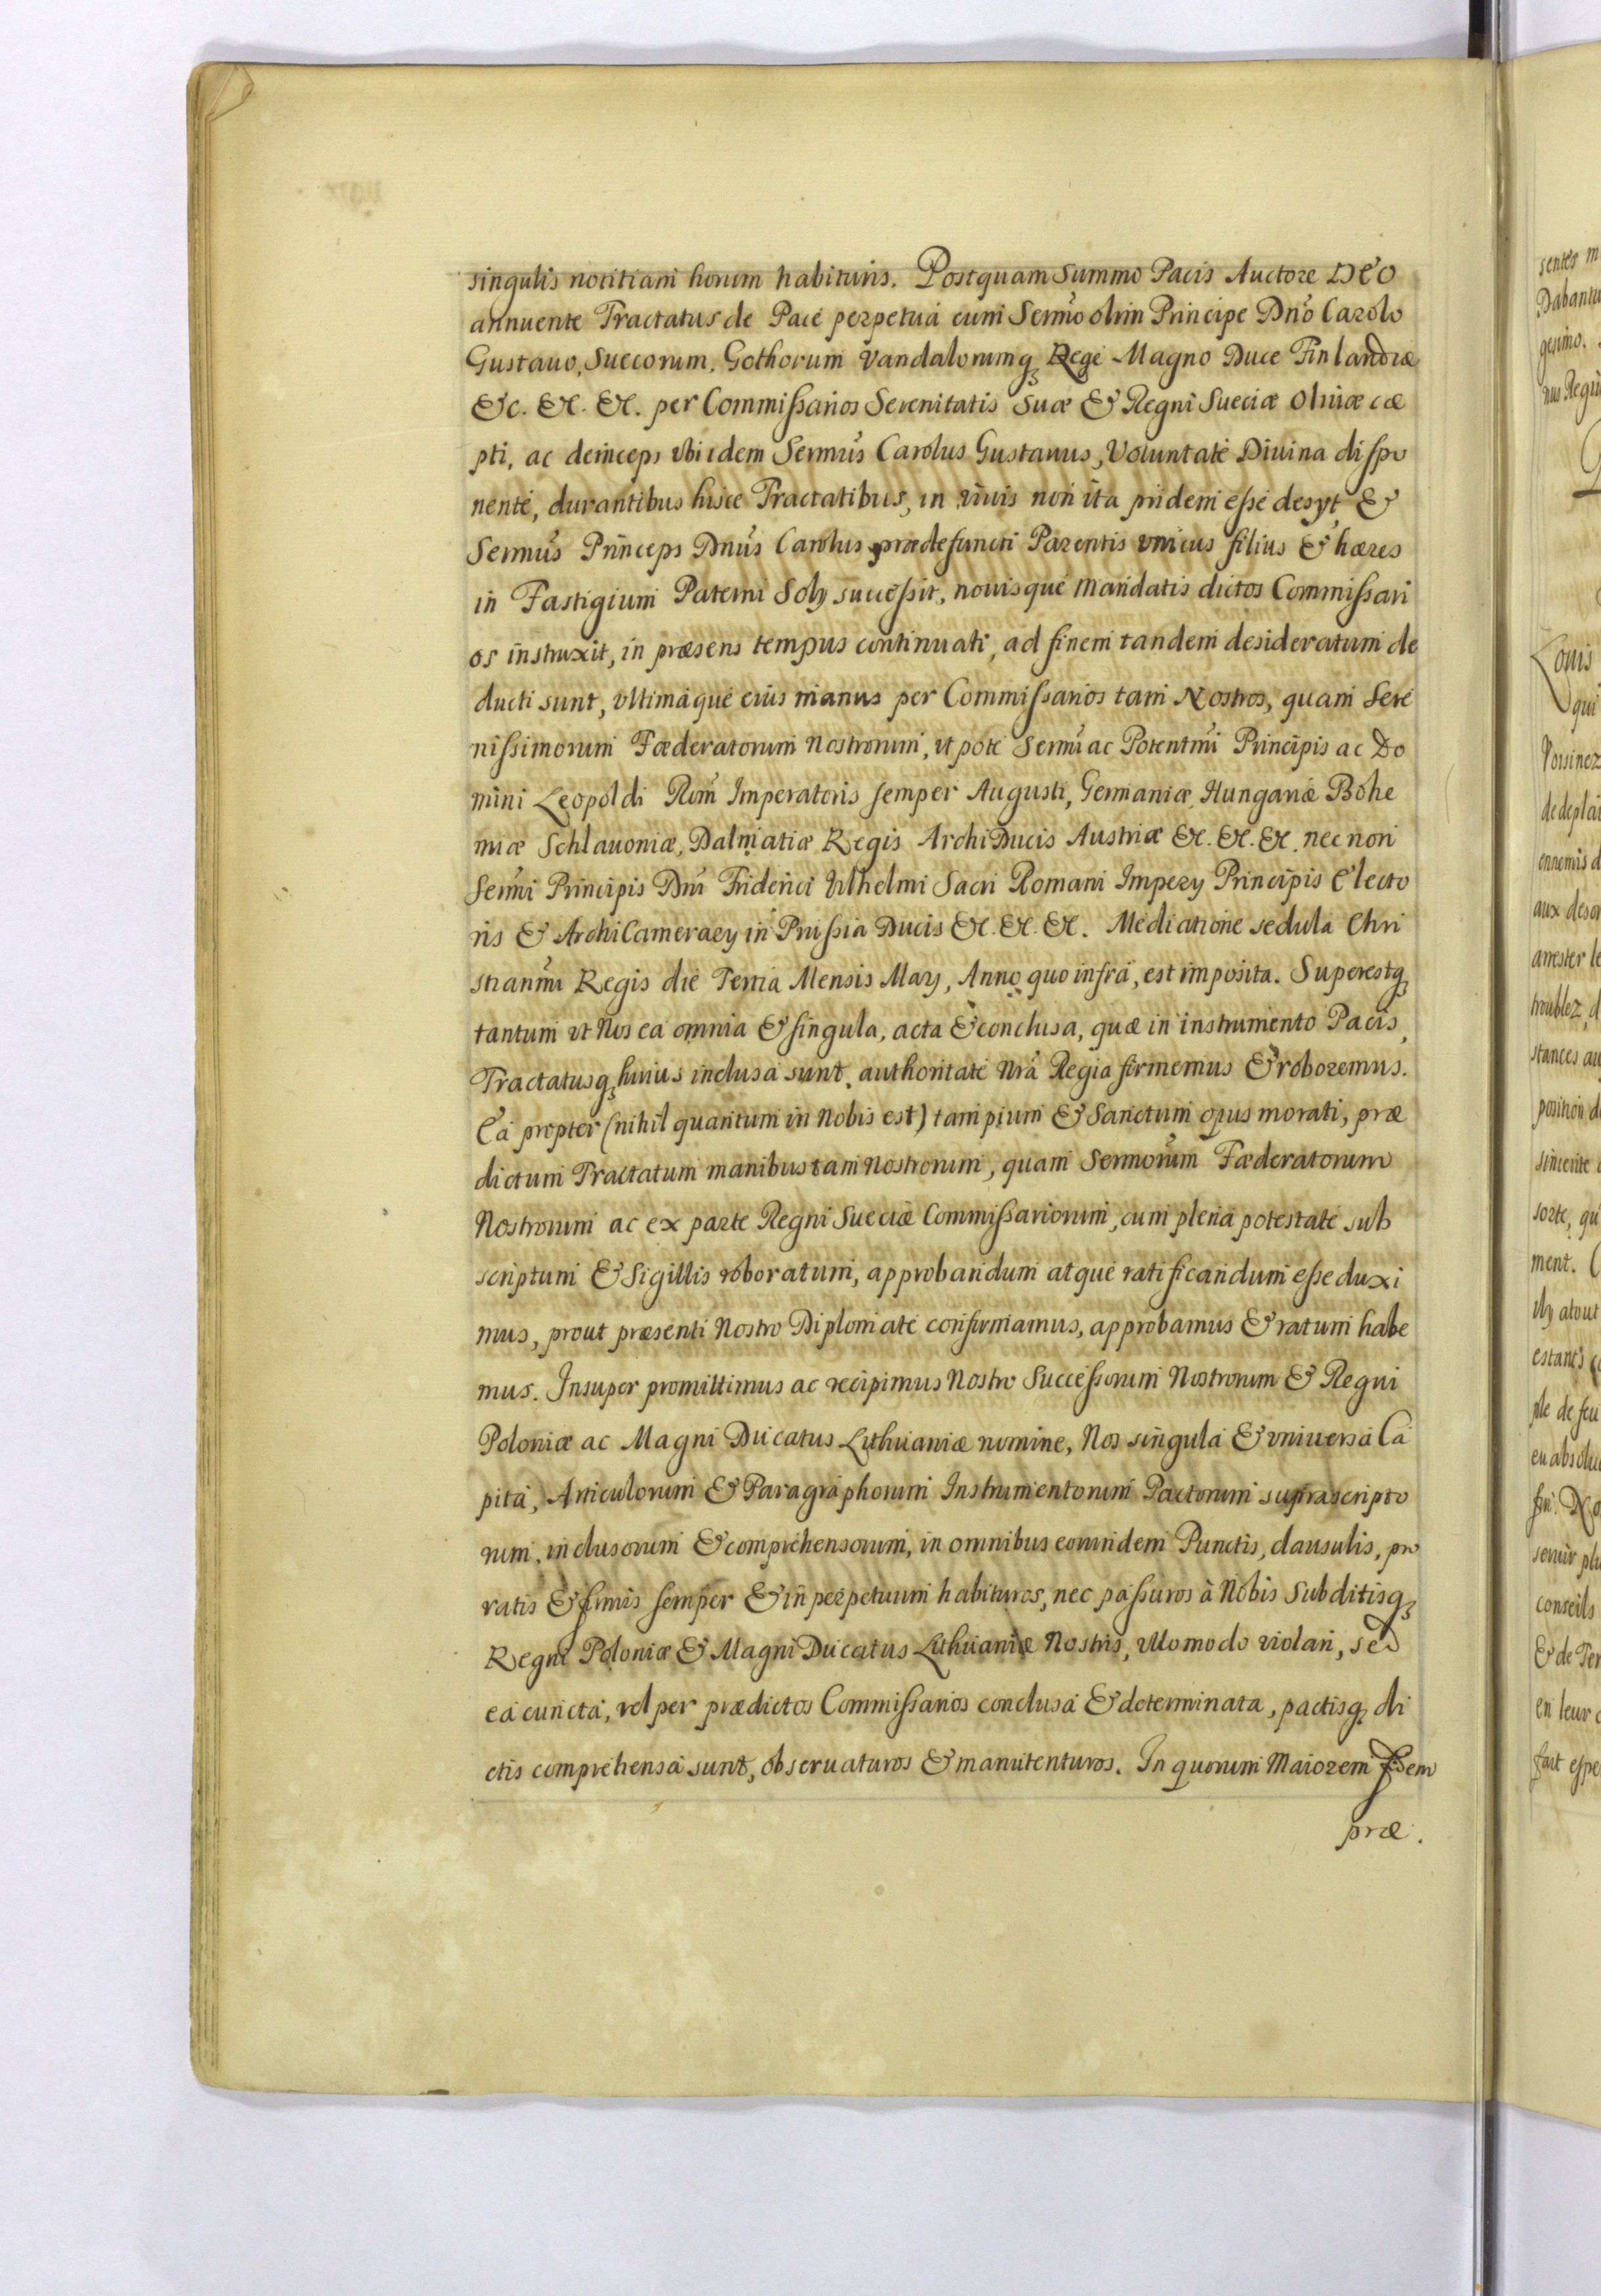 singulis notitiam horum habituris. Postquam Summo Pacis Auctore DEO
annuente Tractatus de Pace perpetua cum Sermo olim Principe Dno Carolo
Gustauo, Suecorum, Gothorum Vandalorumq Rege Magno Duce Finlandiæ
&c. &c. &c. per Commissarios Serenitatis Suæ & Regni Sueciæ Oliuæ cæ
pti, ac deinceps vbi idem Sermus Carolus Gustauus, Voluntate Diuina dispo
nente, durantibus hisce Tractatibus, in viuis non ita pridem esse desyt &
Sermus Princeps Dnus Carolus prædefuncti Parentis vnicus filius & hæres
in Fastigium Paterni Soly successit, nouisque mandatis dictos Commissari
os instruxit, in præsens tempus continuati, ad finem tandem desideratum de
ducti sunt, vltimaque eius manus per Commissarios tam Nostros, quam Sere
nissimorum Fæderatorum nostrorum, vt pote Sermi ac Potentmi Principis ac Do
mini Leopoldi Rom Imperatoris semper Augusti, Germaniæ, Hungariæ Bohe
miæ Schlauoniæ, Dalmatiæ Regis ArchiDucis Austriæ &c. &c. &c. nec non
Sermi Principis Dni Friderici Vilhelmi Sacri Romani Impery Principis Electo
ris & ArchiCamerary in Prussia Ducis &c. &c. &c. Mediatione sedula Chri
stianmi Regis die Tertia Mensis May, Anno quo infra, est imposita. Superestq
tantum vt Nos ea omnia & singula, acta & conclusa, quæ in instrumento Pacis,
Tractatusq huius inclusa sunt, authoritate Nra Regia firmemus & roboremus.
Ea propter (nihil quantum in Nobis est) tam pium & Sanctum opus morati, præ
dictum Tractatum manibus tam Nostrorum, quam Sermorum Fæderatorum
Nostrorum ac ex parte Regni Sueciæ Commissariorum, cum plena potestate sub
scriptum & Sigillis roboratum, approbandum atque ratificandum esse duxi
mus, prout præsenti Nostro Diplomate confirmamus, approbamus & ratum habe
mus. Insuper promittimus ac recipimus Nostro Successorum Nostrorum & Regni
Poloniæ ac Magni Ducatus Lithuaniæ nomine, Nos singula & vniuersa Ca
pita, Articulorum & Paragraphorum Instrumentorum Pactorum suprascripto
rum, inclusorum & comprehensorum, in omnibus eorundem Punctis, clausulis, pro
ratis & firmis semper & in perpetuum habituros, nec passuros à Nobis Subditisq
Regni Poloniæ & Magni Ducatus Lithuaniæ Nostris, vllo modo violari, sed
ea cuncta, vel per prædictos Commissarios conclusa & determinata, pactisq di
ctis comprehensa sunt, obseruaturos & manutenturos. In quorum Maiorem fidem
præ.
sentes
Dabantur
gesimo.
Louis
qui
Voisinez
ennemis d
arrester le
troublez, d
sorte, qu
ment.
conseils
& de Ter
en leur